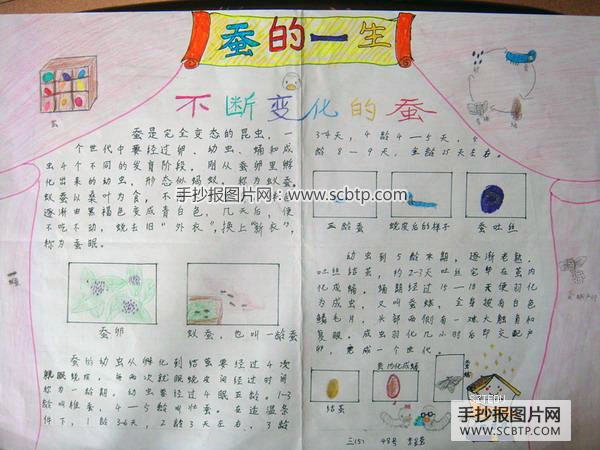 蚕的一生
不断变化的蚕
蚕是完全变态的昆虫，一
个世代中要经过卵、幼虫、蛹和成
虫4个不同的发育阶段。刚从蚕卵里孵
化出来的幼虫，形态似蚂蚁，称为蚁蚕。
蚁蚕以桑叶为食，不
逐渐由黑褐色变成青白色，几天后，便
不吃不动，蜕去旧“外衣”，换上“新衣”，
称为蚕眠。
蚕卵
蚁蚕，也叫一龄蚕
蚕的幼虫从孵化到结茧要经过4次
就眠蜕皮，每两次就眠蜕皮间经过时间
称为一龄期。幼虫要经过4眠五龄，1-3
龄叫稚蚕，4—5龄叫壮蚕。在适温条
件下，1龄3-4天，2龄3天左右，3龄
3-4天，4龄4—5天，5
龄8—9天，全龄25天左右。
五龄蚕
蜕皮后的样子
蚕吐丝
幼虫到5龄末期，逐渐老熟，
吐丝结茧，约2-3天吐丝完即在茧内
化成蛹。蛹期经过15—18天便羽化
为成虫，又叫蚕蛾，全身披有白色
鳞毛片，头部两侧有一对大触角和
复眼。成虫羽化几小时后即交配产
卵，完成一个世代。
结茧
茧内化成蛹
蚕蛾
三(5) 48号
手抄报图片网：www.scbtp.com
手抄报图片网
WWW.SCBTP.COM